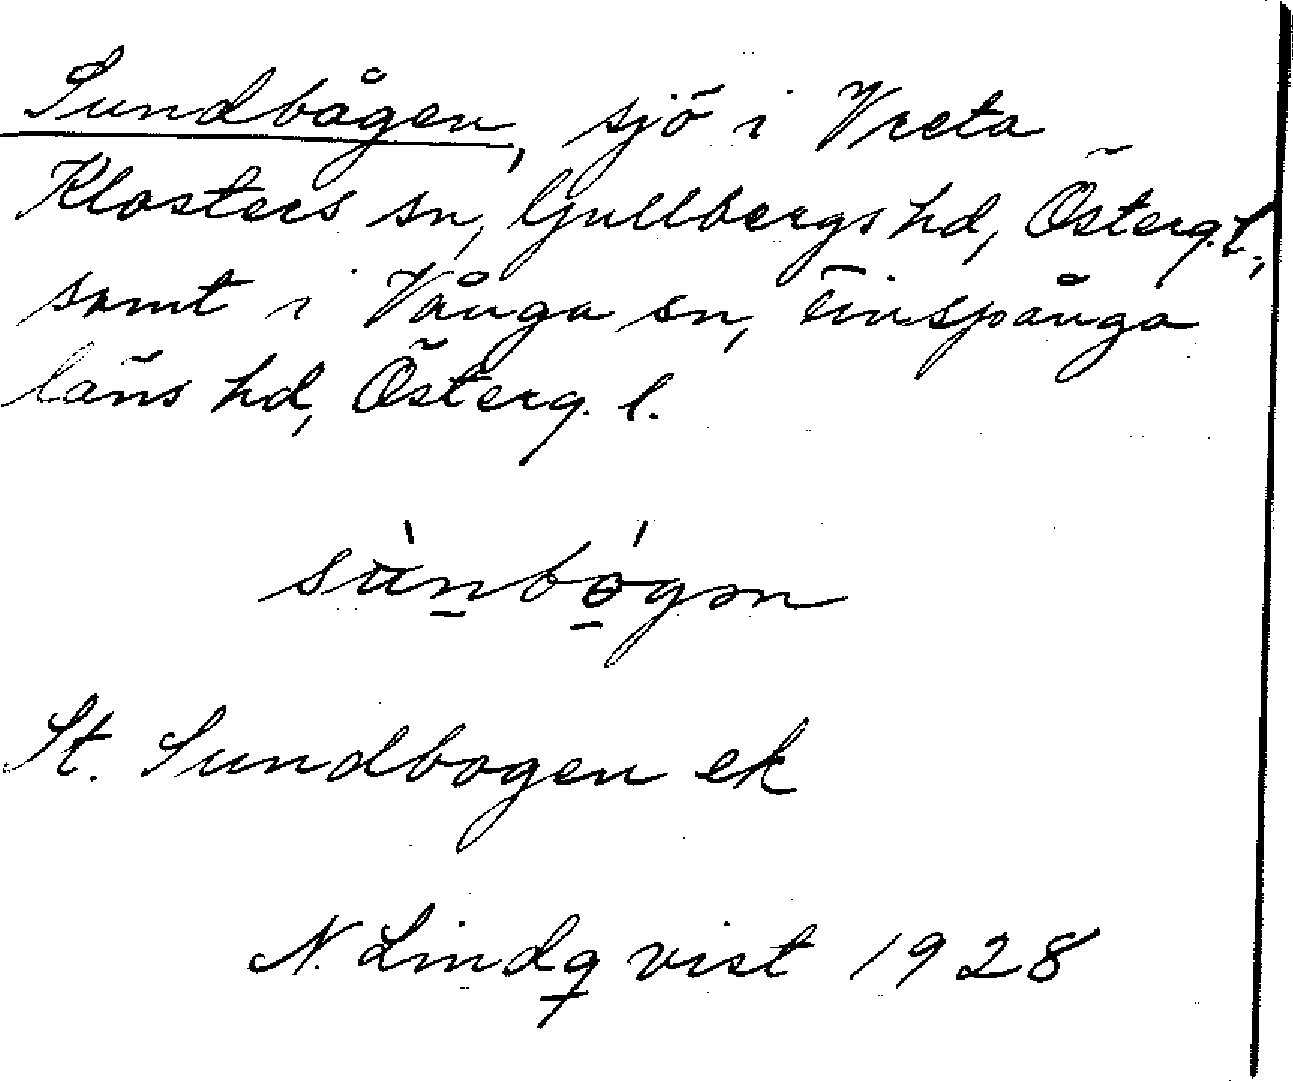 Sundbågen, sjö i Vreta
Klosters sn, Gullbergs hd, Österg. l.,
samt i Vånga sn, Finspånga
läns hd, Österg. l.
sùnbógən
St. Sundbogen ek
N. Lindqvist 1928